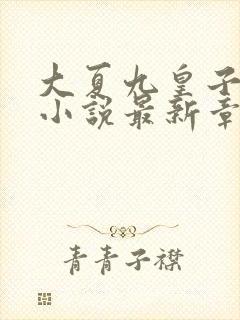 大夏九皇子
小説最新章
青青子襟